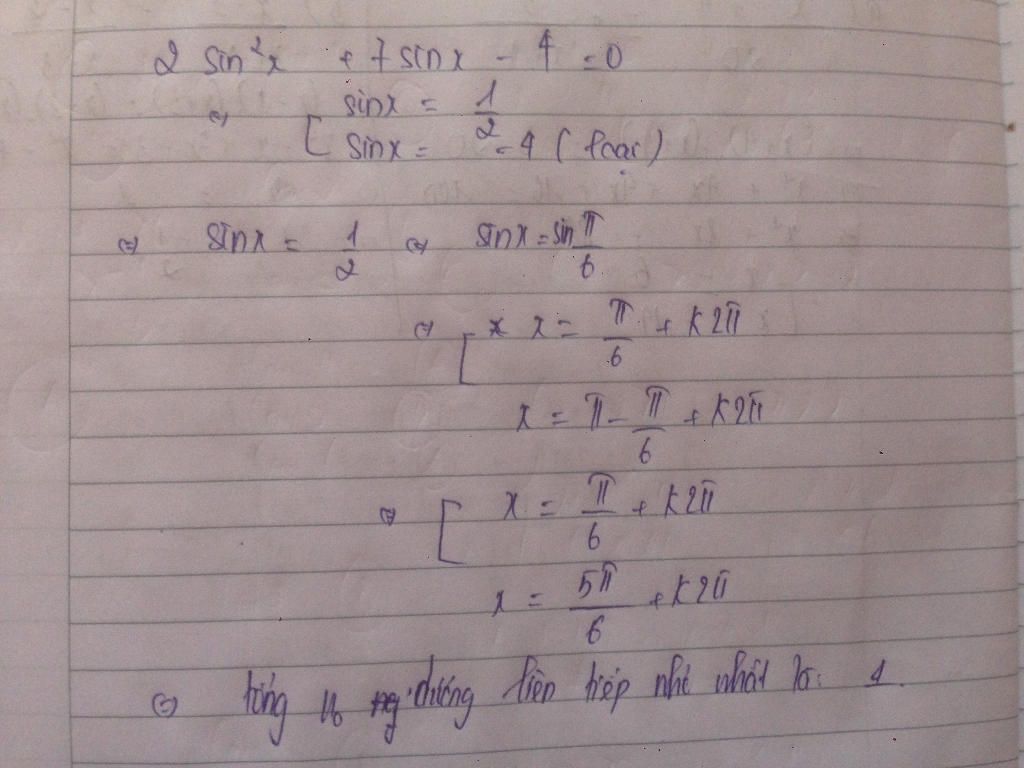 2 sin²x + 7 sinx - 4 = 0
⇔ [ sinx = 1/2
sinx = -4 (loại)
⇔ sinx = 1/2 ⇔ sinx = sin π/6
⇔ [ x = π/6 + k2π
x = π - π/6 + k2π
⇔ [ x = π/6 + k2π
x = 5π/6 + k2π
⇔ tổng liên tiếp nhỏ nhất là: 1.